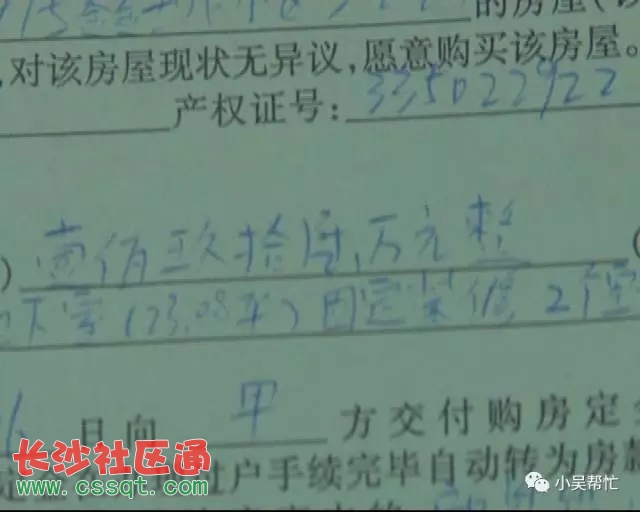 的房屋
,对该房屋现状无异议,愿意购买该房屋。
产权证号: 335022922
壹佰玖拾 万元整
下室(23.08平)固定装修 2
日向 甲 方交付购房定
户手续完毕自动转为房
长沙社区通
www.cssqt.com
小吴帮忙